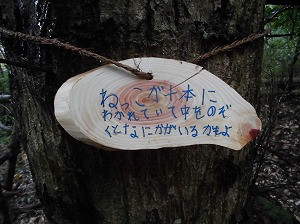 ねっこが十本に
わかれていて中をのぞ
くとなにかがいるかもよ